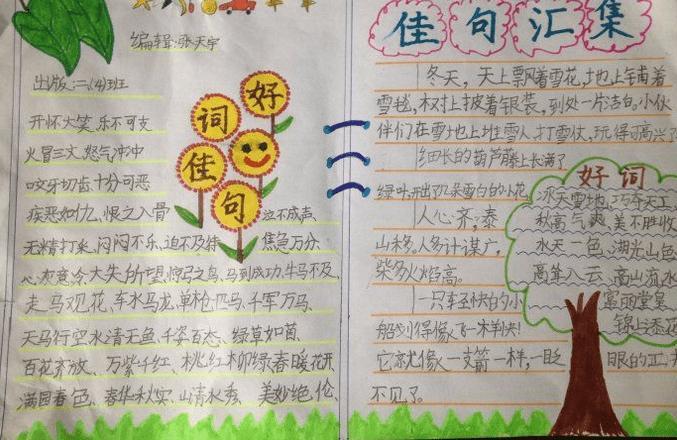 编辑:张天宇
出版:二、(4)班
好
词
佳
句
开怀大笑、乐不可支
火冒三丈、怒气冲冲
咬牙切齿、十分可恶
疾恶如仇、恨之入骨
泣不成声、
无精打采、闷闷不乐、迫不及待
焦急万分、
心灰意冷、大失所望、惊弓之鸟、马到成功、牛马不及、
走马观花、车水马龙、单枪匹马、千军万马、
天马行空、水清无鱼、千姿百态、绿草如茵、
百花齐放、万紫千红、桃红柳绿、春暖花开、
满园春色、春华秋实、山清水秀、美妙绝伦、
佳句汇集
冬天，天上飘着雪花，地上铺着
雪毯，树上披着银装，到处一片洁白。小伙
伴们在雪地上堆雪人,打雪仗,玩得可高兴了
细长的葫芦藤上长满了
绿叶,开出了几朵雪白的小花
人心齐,泰
山移。人多计谋广,
柴多火焰高。
一只轻快的小
船划得像飞一样
它就像一支箭一样,一眨
眼的工夫
不见了。
好词
冰天雪地、巧夺天工
秋高气爽、美不胜收
水天一色、湖光山色
高耸入云、高山流水
富丽堂皇
锦上添花